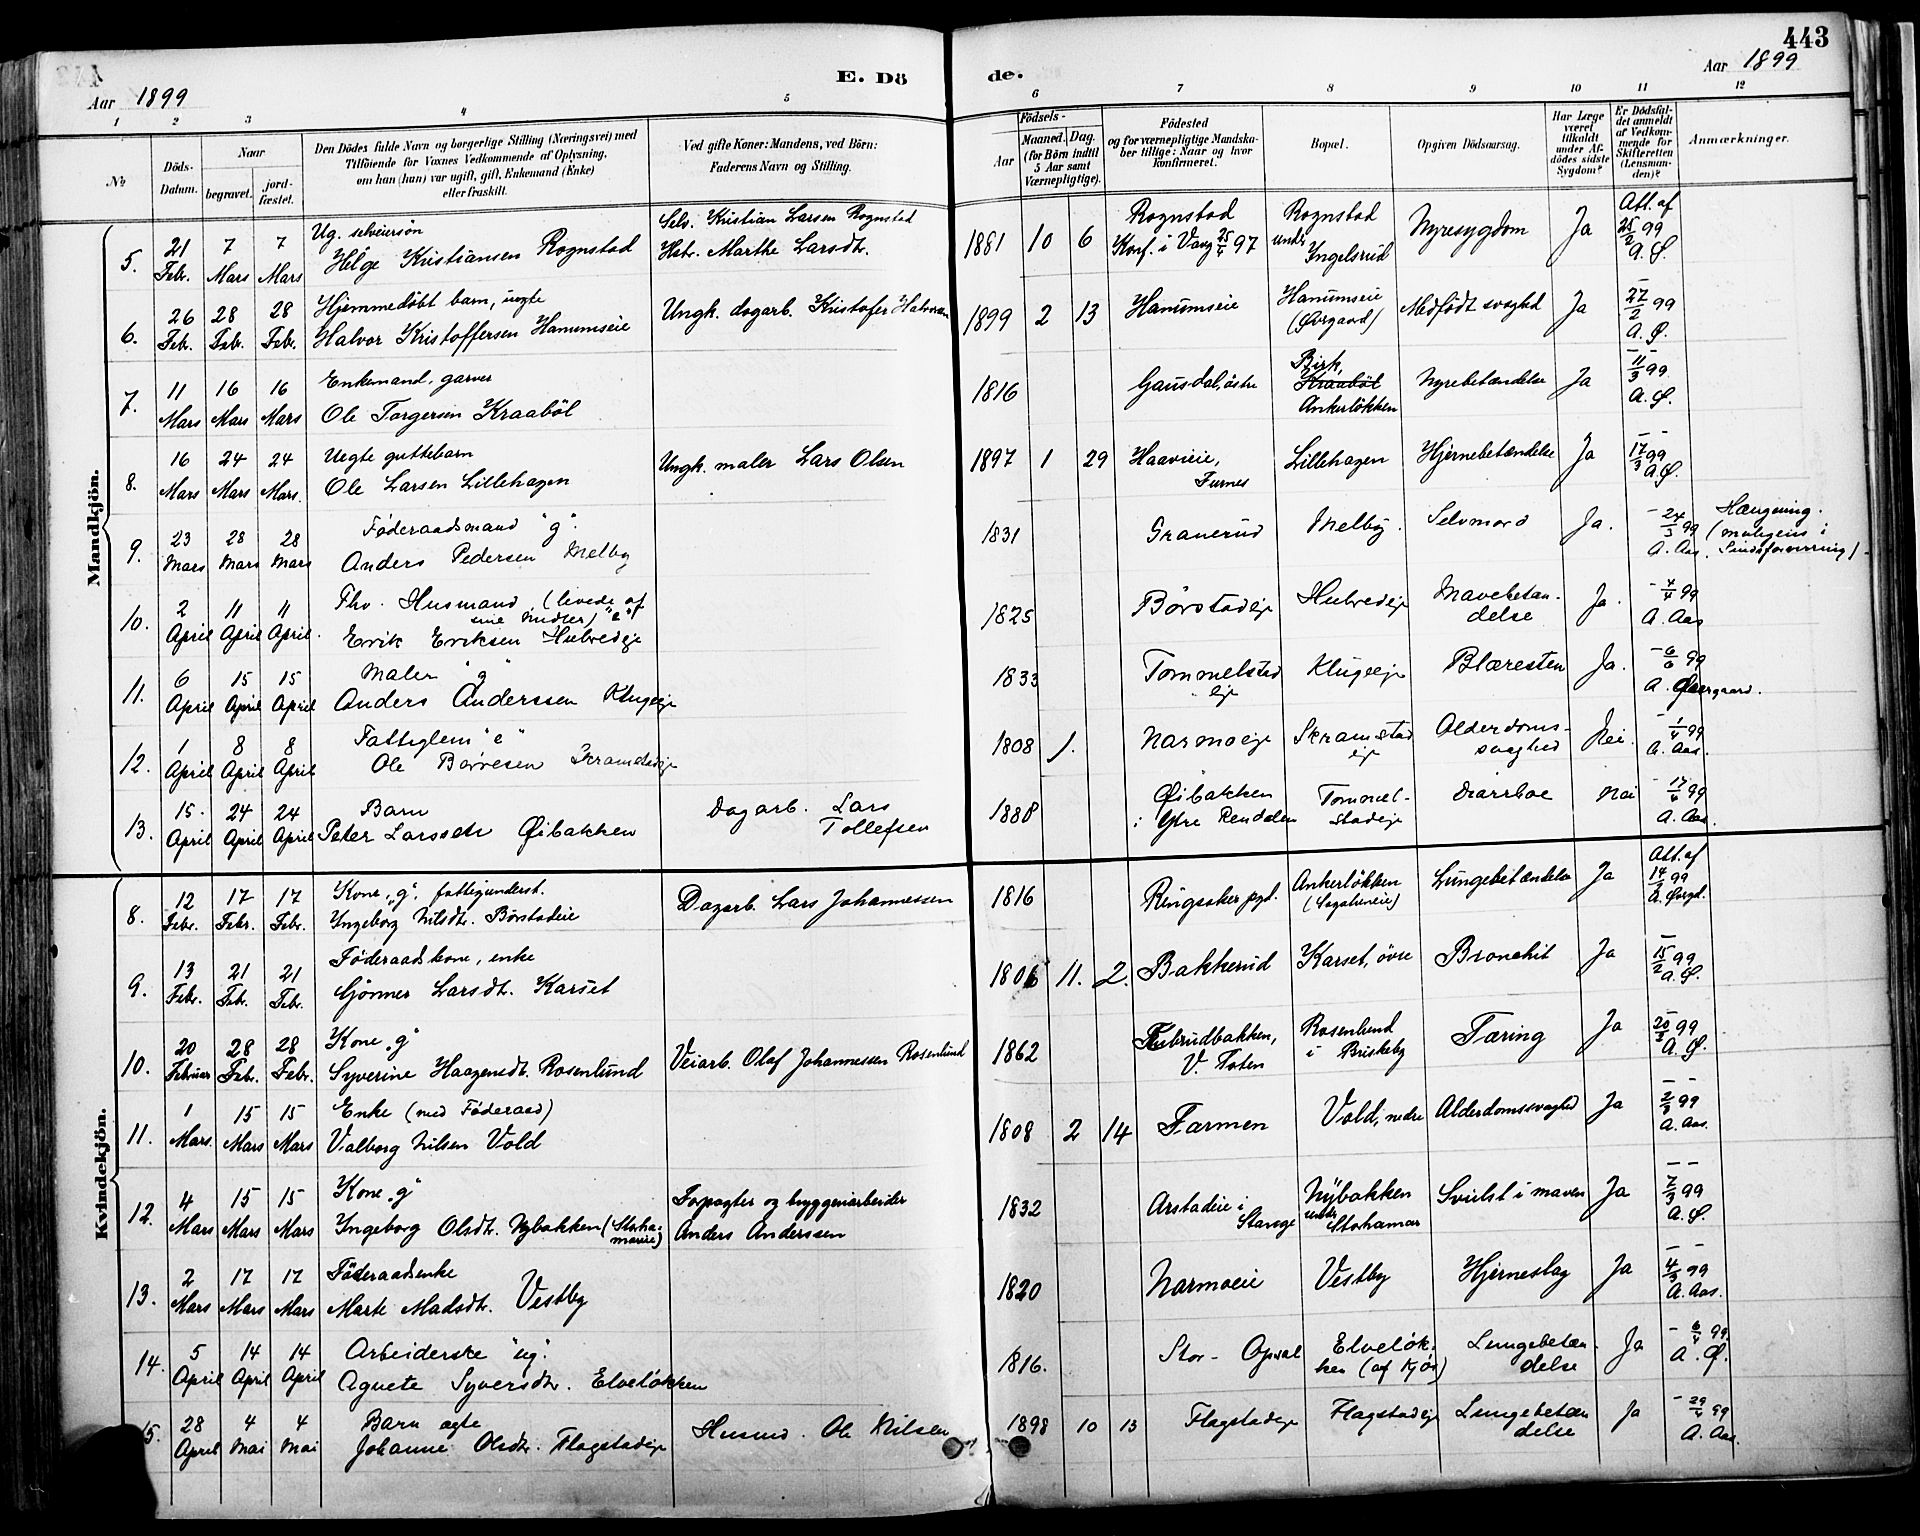 443
Aar 1899
E. Dö
de.
Aar 1899
1 2 3 4 5 6 7 8 9 10 11 12
№
Döds-Datum.
Naar
begravet.
jord-fæstet.
Den Dödes fulde Navn og borgerlige Stilling (Næringsvei) med
Tilföiende for Voxnes Vedkommende af Oplysning,
om han (hun) var ugift, gift, Enkemand (Enke)
eller fraskilt.
Ved gifte Koner: Mandens, ved Börn:
Faderens Navn og Stilling.
Födsels-
Aar
Maaned. Dag.
(for Börn indtil
5 Aar samt
Værnepligtige).
Födested
og for værnepligtige Mandska-
ber tillige: Naar og hvor
konfirmeret.
Bopæl.
Opgiven Dödsaarsag.
Har Læge
været
tilkaldt
under Af-
dödes sidste
Sygdom?
Er Dödsfal-
det anmeldt
af Vedkom-
mende for
Skifteretten
(Lensman-
den)?
Anmærkninger.
Mandkjön.
5. 21 Febr. 7 Mars 7 Mars Ug. selveiersön Helge Kristiansen Rognstad Selv. Kristian Larsen Rognstad Hstr. Marthe Larsdt. 1881 10 6 Rognstad Konf. i Vang 25/4 97 Rognstad under Ingelsrud Nyresygdom Ja Att. af 25/2 99 A. Ø.
6. 26 Febr. 28 Febr. 28 Febr. Hjemmedöbt barn, uegte Halvor Kristoffersen Hanumseie Ungk. dagarb. Kristofer Halvorsen 1899 2 13 Hanumseie Hanumseie (Øvergaard) Medfödt svaghed Ja 27/2 99 A. Ø.
7. 11 Mars 16 Mars 16 Mars Enkemand, garver Ole Torgersen Kraaböl 1816 Gausdal, östre Birk, Kraaböl Ankerlökken Nyrebetændelse Ja 11/3 99. A. Ø.
8. 16 Mars 24 Mars 24 Mars. Uegte guttebarn Ole Larsen Lillehagen Ungk. maler Lars Olsen 1897 1 29 Haavieie, Furnes Lillehagen Hjernebetændelse Ja 17/3 99 A. Ø.
9. 23 Mars 28 Mars 28 Mars Føderaadsmand "g". Anders Pedersen Melby 1831 Granerud Melby. Selvmord Ja. 24/3 99 A. Aas. Hængning. (muligens i Sindsforvirring)
10. 2 April 11 April 11 April. Fhv. Husmand (levede af sine Midler) "e" Erik Eriksen Hubredeje 1825 Børstadeje Hubredeje Mavebetændelse Ja. 4/4 99 A. Aas
11. 6 April 15 April 15 April Maler "g" Anders Anderssen Klugeje 1833 Tommelstad eje Klugeje Blæresten Ja. 99 A. Øvergaard.
12. 1 April 8 April 8 April Fattiglem "e" Ole Børresen Skramstadeje 1808 1. Narmoeje Skramstad eje Alderdoms-svaghed Nei. 1/4 99 A. Aas.
13. 15. April 24 April 24 April Barn Peter Larssen Øibakken Dagarb. Lars Tollefsen 1888 Øibakken i Ytre Rendalen Tommel-stadeje Diarrhoe Nei 99 A. Aas.
Kvindekjön.
8. 12 Febr. 17 Febr. 17 Febr. Kone "g". fattigunderst. Ingeborg Nilsdt. Börstadeie Dagarb. Lars Johannessen 1816 Ringsaker pgd. Ankerlökken Lungebetændelse Ja Att. af 14/2 99 A. Øvrgd.
9. 13 Febr. 21 Feb. 21 Febr. Föderaadskone, enke Gjönner Larsdt. Karset 1806 11. 2. Bakkerud Karset, övre Bronchit Ja 15/2 99 A. Ø.
10. 20 Februar 28 Febr. 28 Febr. Kone "g" Syverine Haagensdt. Rosenlund Veiarb. Olaf Johannessen Rosenlund 1862 V. Toten Rosenlund i Briskeby Tæring Ja 20/2 99 A. Ø.
11. 1 Mars. 15 Mars 15 Mars Enke (med Föderaad) Valborg Nilsen Vold 1808 2 14 Farmen Vold, nedre Alderdomssvaghed Ja 2/3 99 A. Aas.
12. 4 Mars 15 Mars 15 Mars Kone "g" Ingeborg Olsdt. Nybakken (Stoha-mareie) Forpagter og bryggeriarbeider Anders Anderssen 1832 Arstadeie i Stange Nybakken under Storhamar Svulst i maven Ja 7/3 99 A. Ø.
13. 2 Mars 17 Mars 17 Mars Föderaadsenke Marte Madsdt. Vestby 1820 Narmoeie Vestby Hjerneslag Ja 4/3 99 A. Aas.
14. 5 April 14 April 14 April Arbeiderske "ug". Agnete Syversdtr. Elveløkken 1816. Stor-Opsal Elveløk-ken (af Kjøs) Lungebetæn-delse Ja 6/4 99 A. Ø.
15. 28 April 4 Mai 4 Mai Barn ægte Johanne Olsdtr. Flagstadeje Husmd. Ole Nilsen 1898 10 13 Flagstadeje Flagstadeje Lungebetæn-delse Ja 29/4 99 A. Aas.